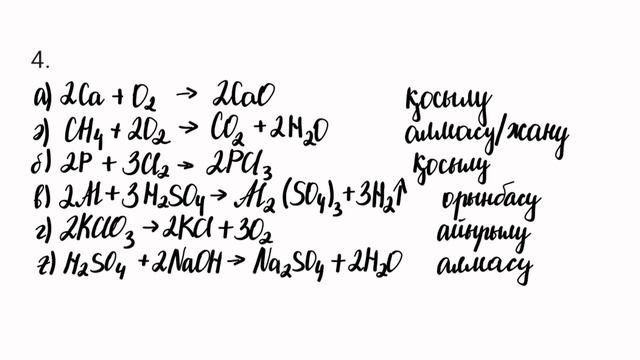 4.
а) 2Ca + O₂ → 2CaO қосылу
ә) CH₄ + 2O₂ → CO₂ + 2H₂O алмасу/жану
б) 2P + 3Cl₂ → 2PCl₃ қосылу
в) 2Al + 3H₂SO₄ → Al₂(SO₄)₃ + 3H₂↑ орынбасу
г) 2KClO₃ → 2KCl + 3O₂ айырылу
ғ) H₂SO₄ + 2NaOH → Na₂SO₄ + 2H₂O алмасу